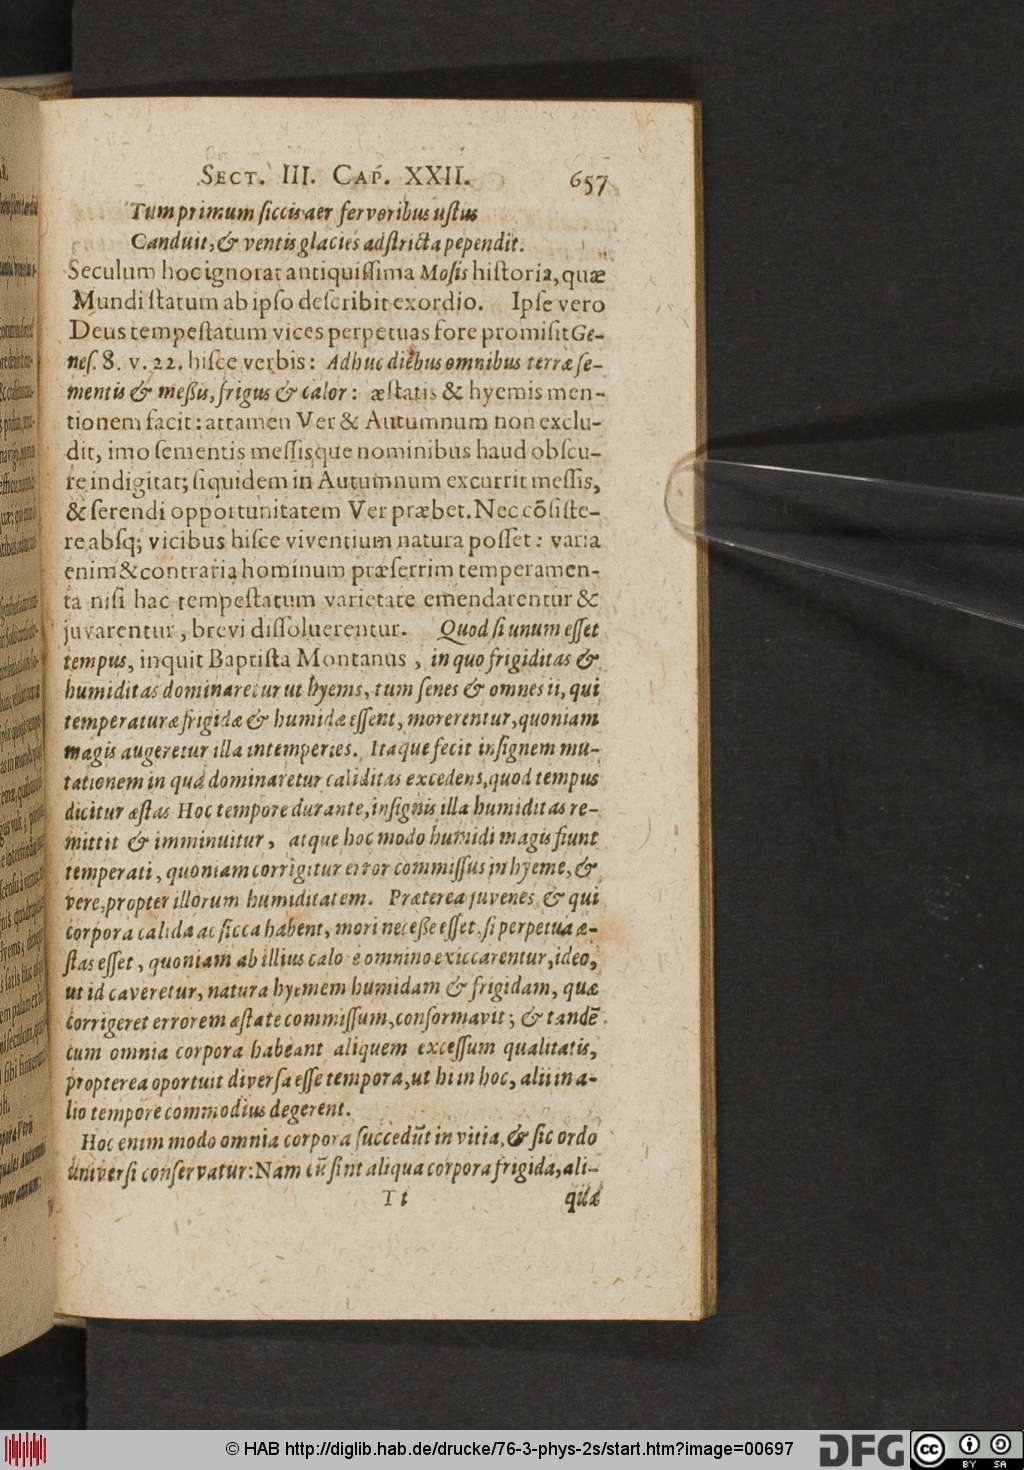 SECT. III. CAP. XXII. 657
Tum primum siccis aer fervoribus ustus
Canduit, & ventis glacies adstricta pependit.
Seculum hoc ignorat antiquissima Mosis historia, quæ
Mundi statum ab ipso describit exordio. Ipse vero
Deus tempestatum vices perpetuas fore promisit Ge-
nes. 8. v. 22. hisce verbis: Adhuc diebus omnibus terræ se-
mentis & meßis, frigus & calor: æstatis & hyemis men-
tionem facit: attamen Ver & Autumnum non exclu-
dit, imo sementis messisque nominibus haud obscu-
re indigitat; siquidem in Autumnum excurrit messis,
& serendi opportunitatem Ver præbet. Nec cõsiste-
re absq; vicibus hisce viventium natura posset: varia
enim & contraria hominum præsertim temperamen-
ta nisi hac tempestatum varietate emendarentur &
juvarentur, brevi dissoluerentur. Quod si unum esset
tempus, inquit Baptista Montanus, in quo frigiditas &
humiditas dominaretur ut hyems, tum senes & omnes ii, qui
temperaturæ frigidæ & humidæ essent, morerentur, quoniam
magis augeretur illa intemperies. Itaque fecit insignem mu-
tationem in qua dominaretur caliditas excedens, quod tempus
dicitur æstas Hoc tempore durante, insignis illa humiditas re-
mittit & imminuitur, atque hoc modo humidi magis fiunt
temperati, quoniam corrigitur error commissus in hyeme, &
vere, propter illorum humiditatem. Præterea juvenes & qui
corpora calida ac sicca habent, mori neceße esset, si perpetua æ-
stas esset, quoniam ab illius calo e omnino exiccarentur, ideo,
ut id caveretur, natura hyemem humidam & frigidam, quæ
corrigeret errorem æstate commissum, conformavit; & tandẽ
cum omnia corpora habeant aliquem excessum qualitatis,
propterea oportuit diversa esse tempora, ut hi in hoc, alii in a-
lio tempore commodius degerent.
Hoc enim modo omnia corpora succedũt in vitia, & sic ordo
universi conservatur: Nam cũ sint aliqua corpora frigida, ali-
Tt quæ
© HAB http://diglib.hab.de/drucke/76-3-phys-2s/start.htm?image=00697
DFG
cc BY SA